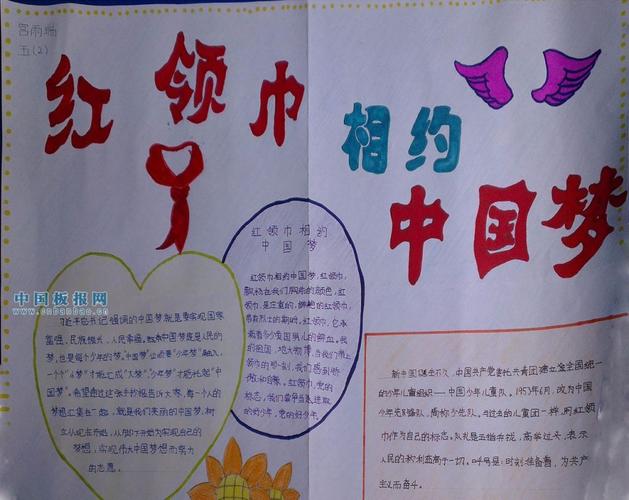 五(2)
红领巾
相约
中国梦
中国板报网
www.cnbanbao.cn
习近平总书记强调的中国梦就是要实现国家
富强,民族振兴,人民幸福,
梦,也是每个少年的梦。中国梦
一个个"小梦"才能汇成"大梦","少年梦"才能托起"中
国梦"。希望通过这张手抄报告诉大家,每一个人的
梦想汇集在一起,就是我们美丽的中国梦,树
立从现在开始,从脚下开始为实现自己的
梦想,实现伟大中国梦想而努力
的志愿。
红领巾相约
中国梦
红领巾相约中国梦,红领巾,
飘扬在我们胸前的颜色,红
领巾,是庄重的,鲜艳的红领巾,
带着烈士的期盼,红领巾,它承
载着多少爱国男儿的鲜血。我
的祖国,地大物博,当我们带上
领巾的那一刻,我们感到骄
傲和自豪。红领巾,党的
标志,我们要争当先进取
的好少年,党的好少年。
新中国诞生不久,中国共产党委托共青团建立全国统一
的少年儿童组织——中国少年儿童队。1953年6月,改为中国
少年先锋队,简称少先队。与过去的儿童团一样,用红领
巾作为自己的标志。队礼是五指并拢,高举过头,表示
人民的利益高于一切。呼号是:时刻准备着,为共产
主义而奋斗。